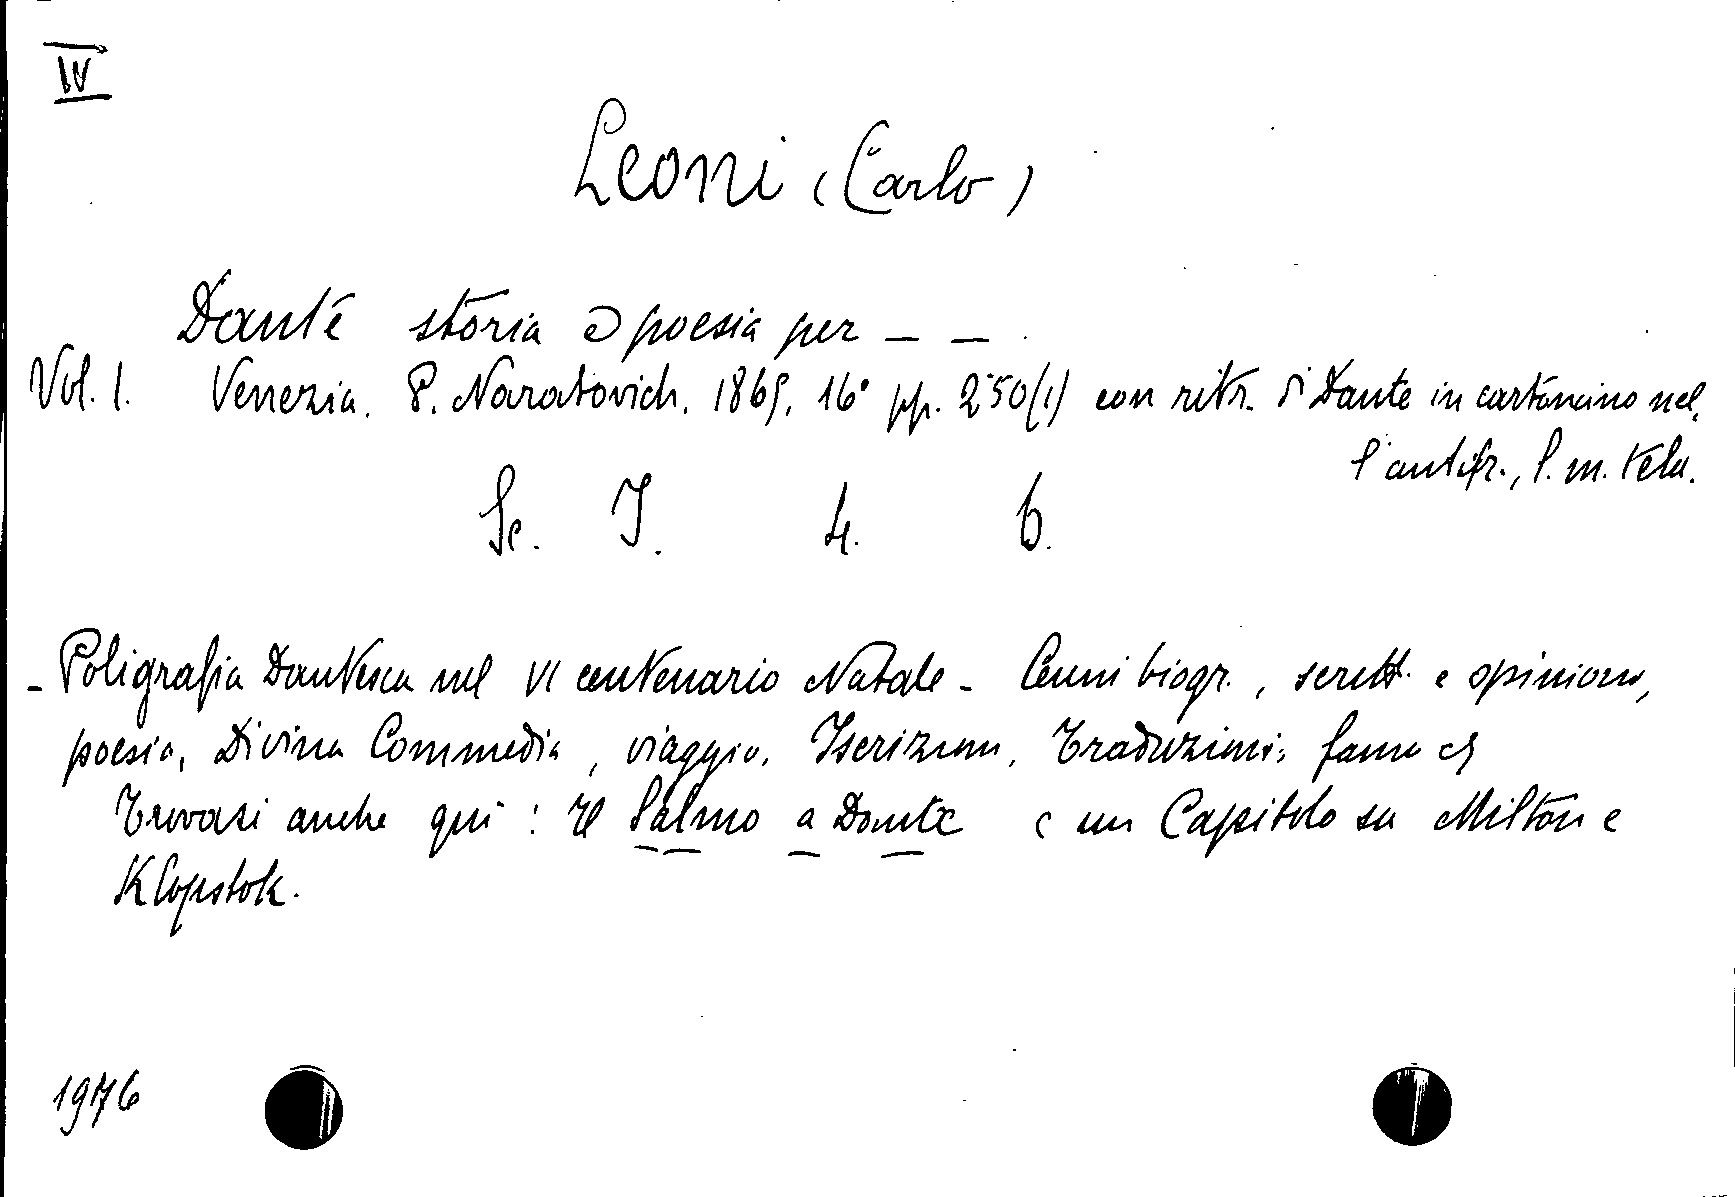 IV
Leoni (Carlo)
Dante storia e poesia per _ _ .
Vol. I. Venezia. P. Naratovich. 1865, 16° pp. 250(1) con ritr. di Dante in cartoncino nel,
l'antifr., l. m. tela.
Sc. I. 4. 6.
- Poligrafia Dantesca nel VI centenario Natale - Cenni biogr., scritt. e opinioni,
poesia, Divina Commedia, viaggio, Iscrizioni, Traduzioni, fama
Trovasi anche qui: Il Salmo a Dante e un Capitolo su Milton e
Klopstok.
1976